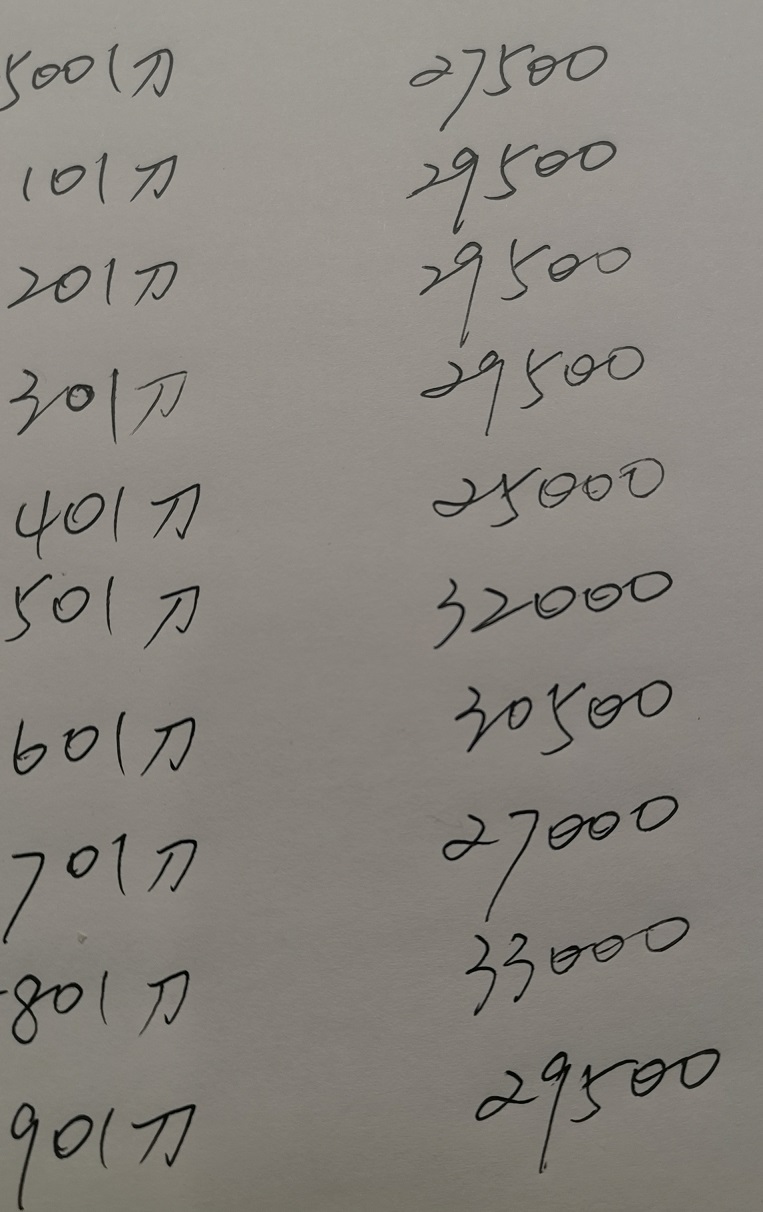 5001刀 27500
101刀 29500
201刀 29500
301刀 29500
401刀 25000
501刀 32000
601刀 30500
701刀 27000
801刀 33000
901刀 29500